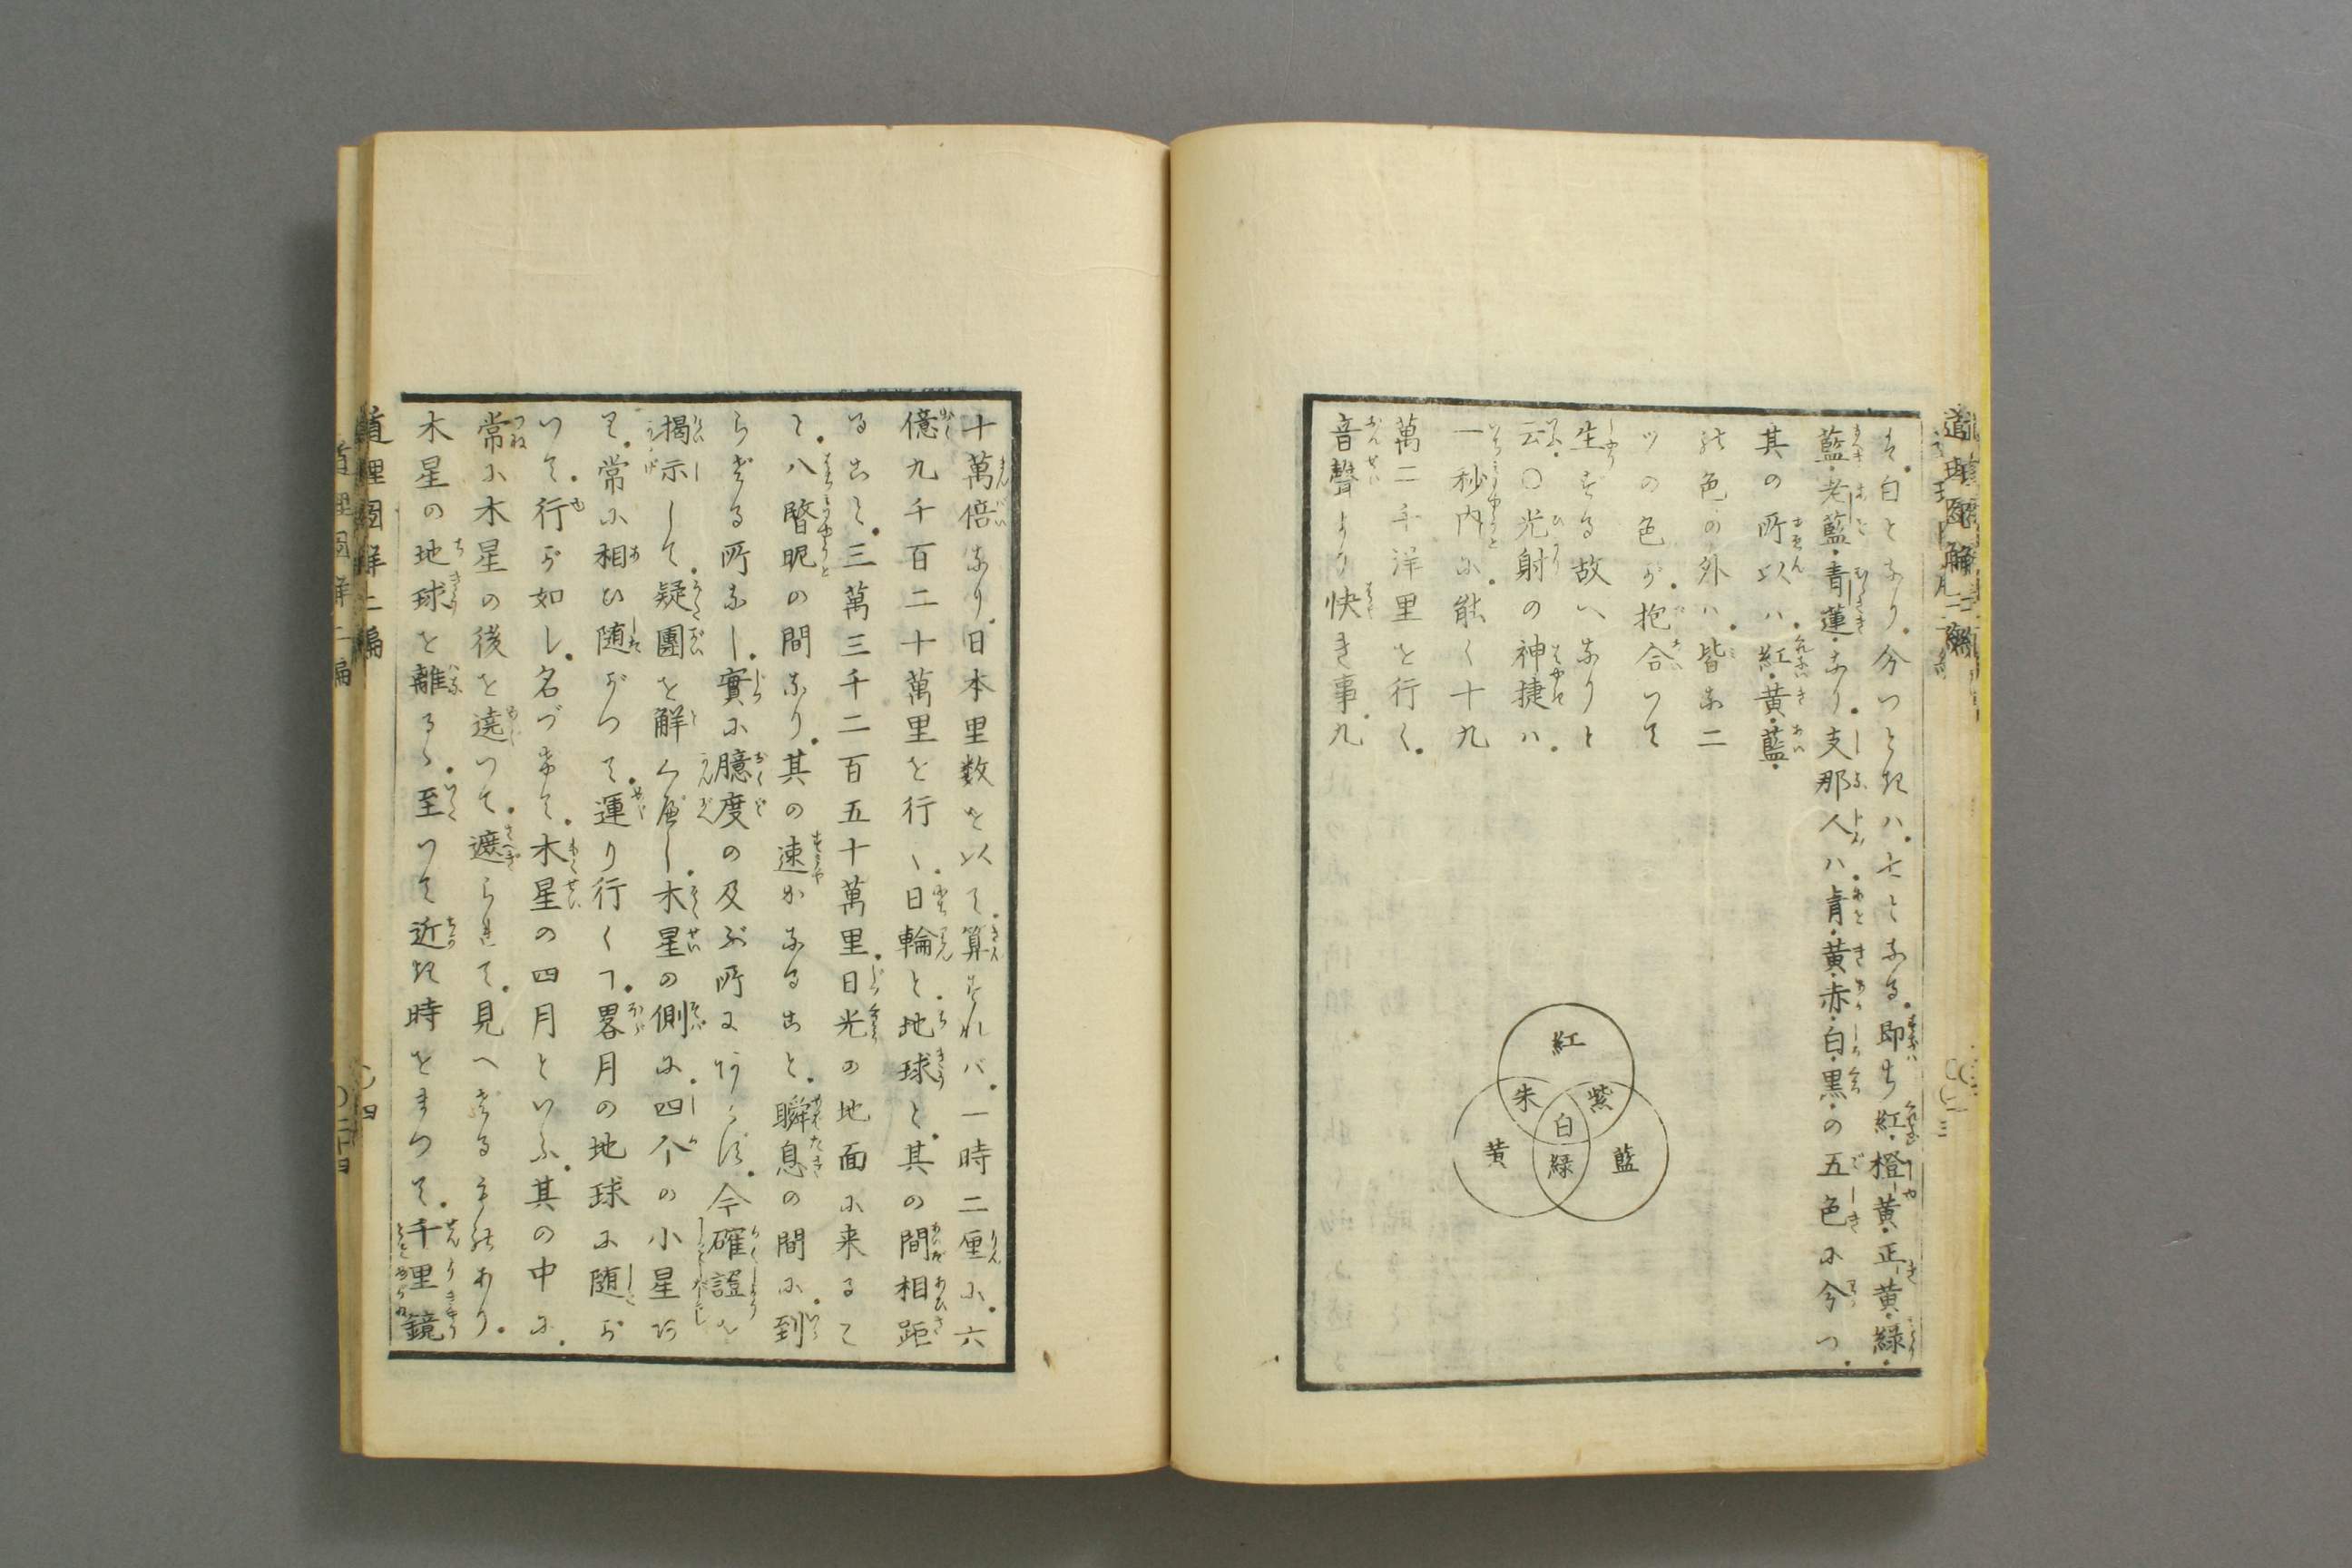 そ。白となり。分つとれハ。七となる。即ち紅・橙黄・正黄・緑・
藍・老藍・青蓮・なり。支那人ハ。青・黄・赤・白・黒・の五色に分つ。
其の所以ハ。紅・黄・藍・
の色の外ハ。皆な二
ツの色が。抱合いて
生ずる故へなりと
云。〇光射の神捷ハ。
一秒内に。能く十九
萬二千洋里を行く。
音聲より快き事。九
紅
朱
紫
白
黄
緑
藍
十萬倍なり。日本里数を以て。算すれバ。一時二厘に。六
億九千百二十萬里を行く。日輪と。地球と。其の間相距
ること。三萬三千二百五十萬里。日光の地面に来るこ
と。八瞥眤の間なり。其の速かなること。瞬息の間に。到
らざる所なし。實に臆度の及ぶ所にあらず。今確證を
掲示して。疑團を解くべし。木星の側に。四个の小星あ
り。常に相ひ随がつて。運り行くヿ。畧月の地球に随が
いて。行が如し。名づけて。木星の四月といふ。其の中に。
常に木星の後を遶いて。遮られて。見へざるものあり。
木星の地球を離るゝ。至つて近き時をまつて。千里鏡
道理圖解二編
〇四